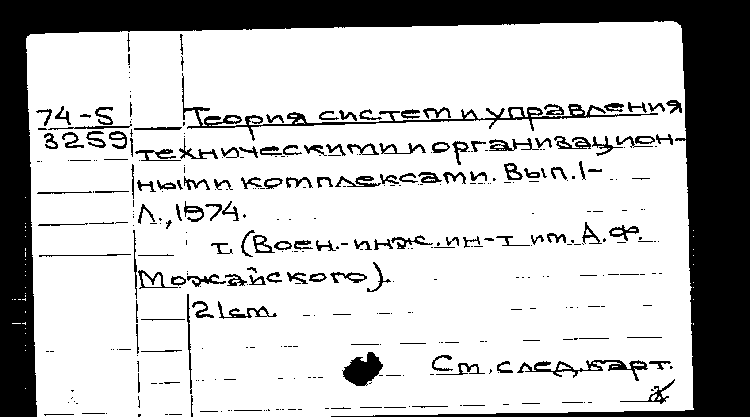 74-5 Теория систем и управления
3259 техническими и организацион-
ными комплексами. Вып. 1-
Л., 1974.
т. (Воен.-инж. ин-т им. А.Ф.
Можайского).
21 см.
См. след. карт.